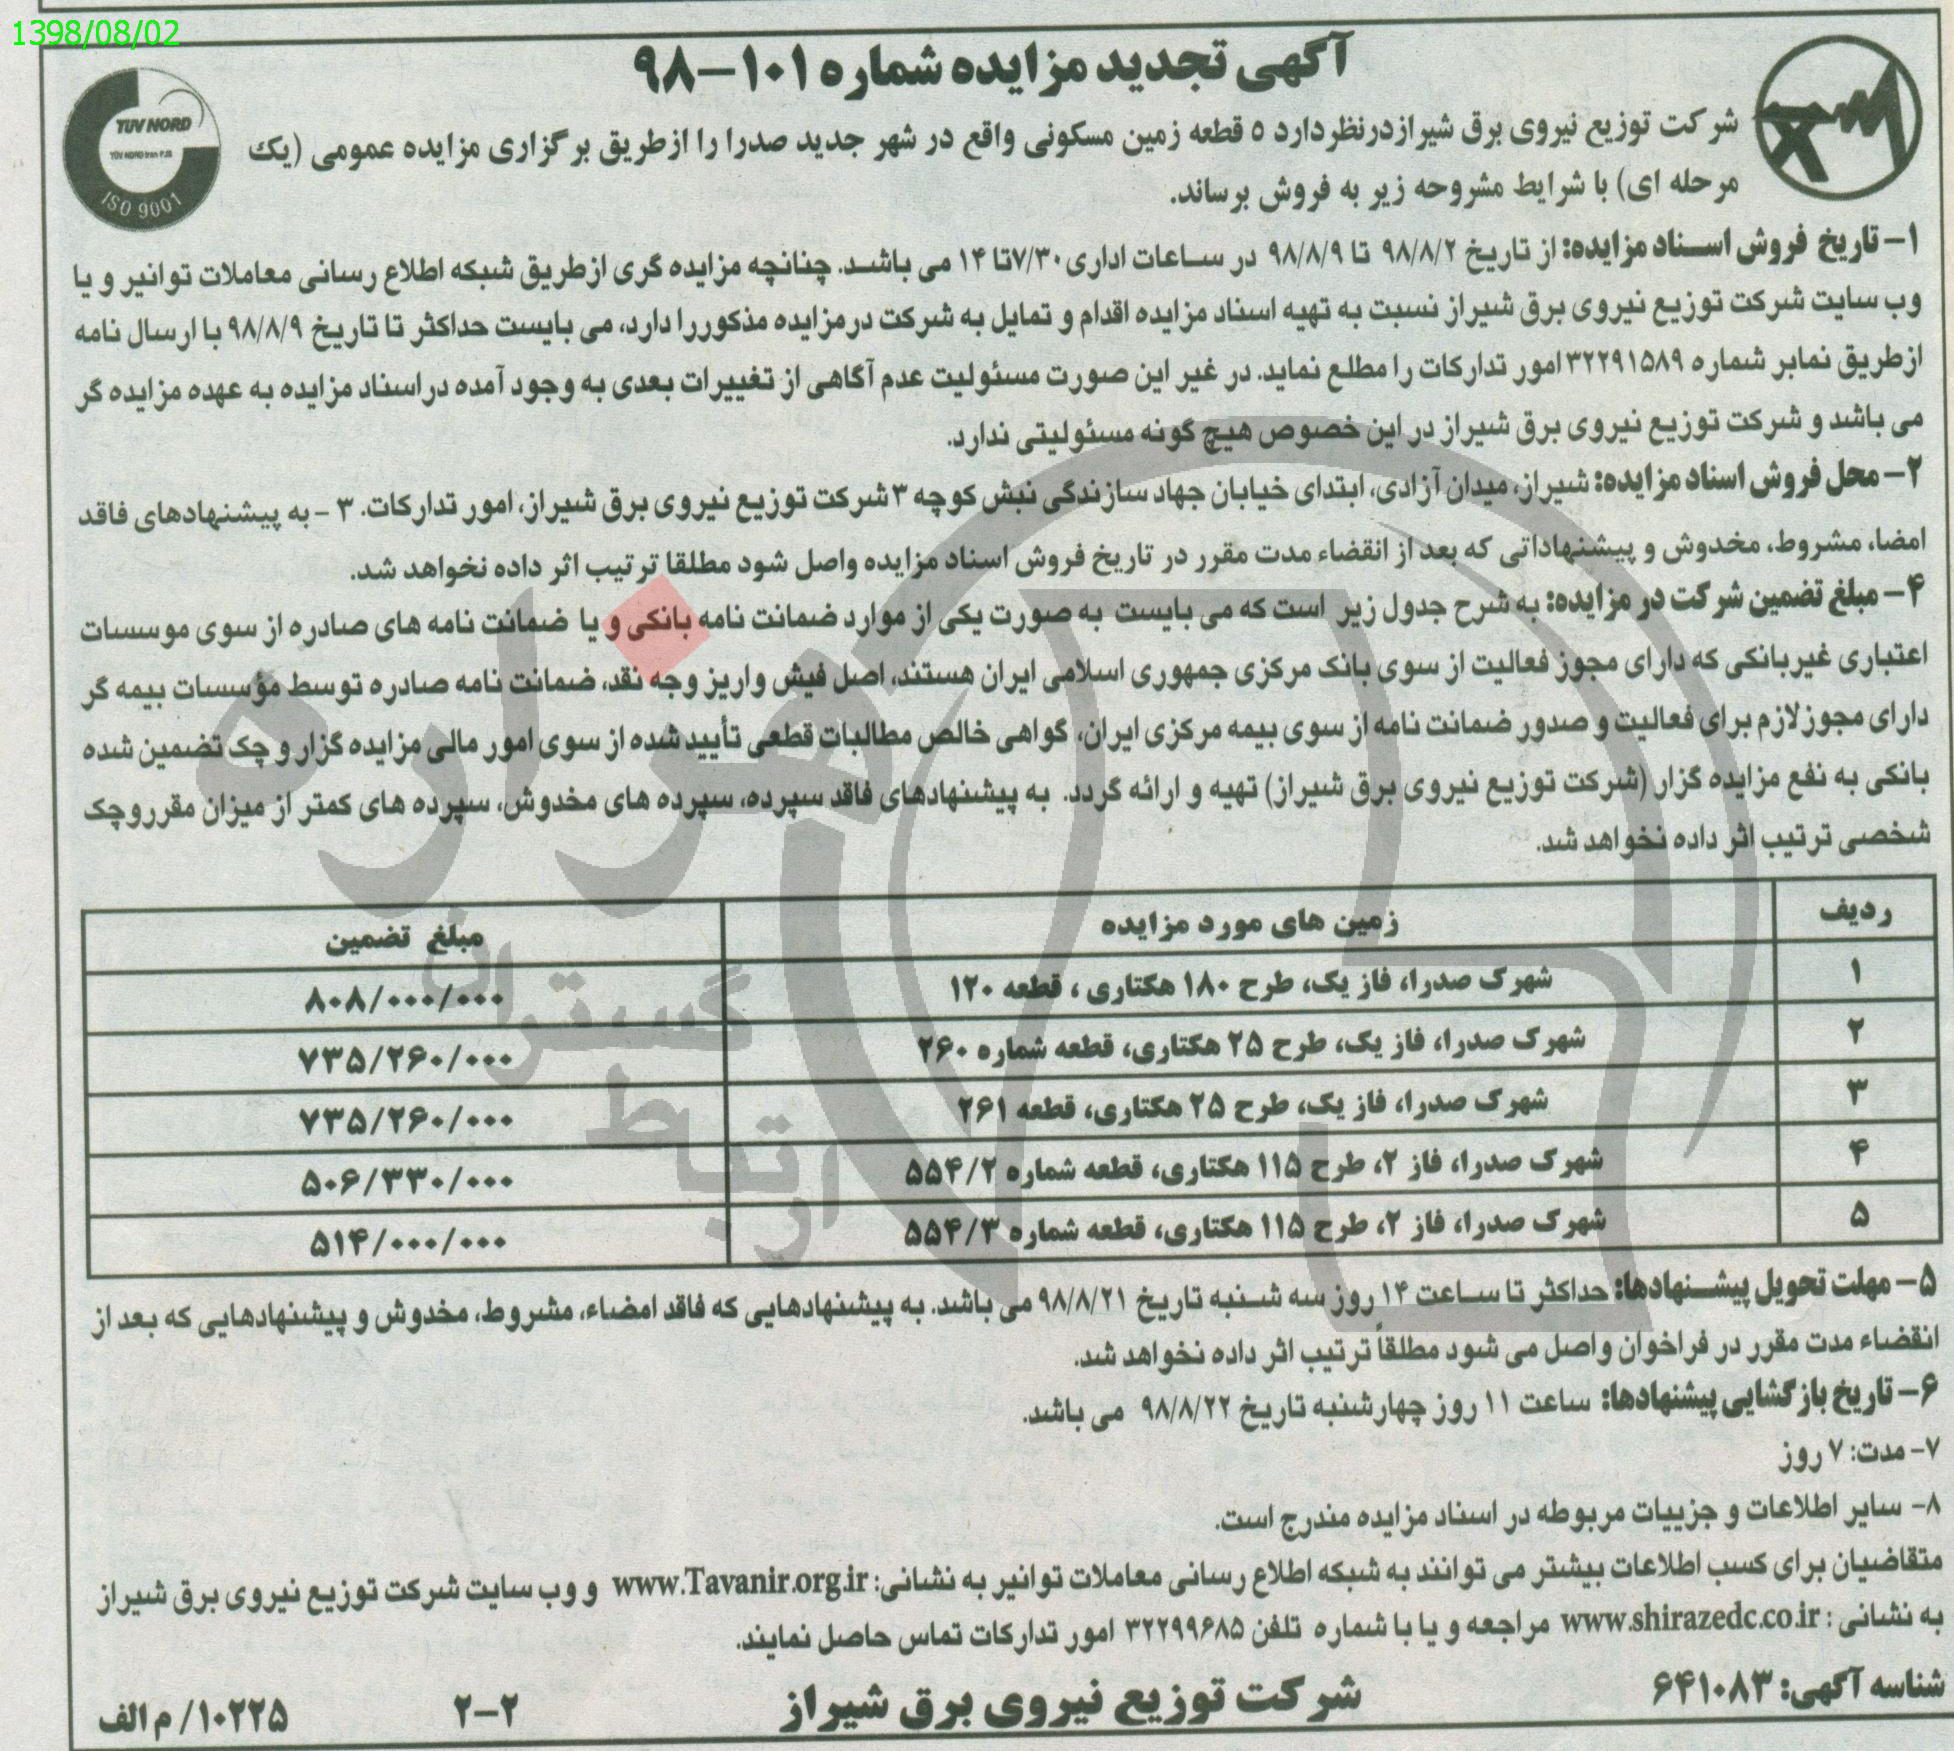 1398/08/02
آگهی تجدید مزایده شماره ۱۰۱-۹۸
TUV NORD
TUV NORD Iran P.JS
ISO 9001
شرکت توزیع نیروی برق شیرازدرنظردارد ۵ قطعه زمین مسکونی واقع در شهر جدید صدرا را ازطریق برگزاری مزایده عمومی (یک
مرحله ای) با شرایط مشروحه زیر به فروش برساند.
۱- تاریخ فروش اسناد مزایده: از تاریخ ۹۸/۸/۲ تا ۹۸/۸/۹ در ساعات اداری ۷/۳۰تا ۱۴ می باشد. چنانچه مزایده گری ازطریق شبکه اطلاع رسانی معاملات توانیر و یا
وب سایت شرکت توزیع نیروی برق شیراز نسبت به تهیه اسناد مزایده اقدام و تمایل به شرکت درمزایده مذکوررا دارد، می بایست حداکثر تا تاریخ ۹۸/۸/۹ با ارسال نامه
ازطریق نمابر شماره ۳۲۲۹۱۵۸۹ امور تدارکات را مطلع نماید. در غیر این صورت مسئولیت عدم آگاهی از تغییرات بعدی به وجود آمده دراسناد مزایده به عهده مزایده گر
می باشد و شرکت توزیع نیروی برق شیراز در این خصوص هیچ گونه مسئولیتی ندارد.
۲- محل فروش اسناد مزایده: شیراز، میدان آزادی، ابتدای خیابان جهاد سازندگی نبش کوچه ۳ شرکت توزیع نیروی برق شیراز، امور تدارکات. ۳ - به پیشنهادهای فاقد
امضا، مشروط، مخدوش و پیشنهاداتی که بعد از انقضاء مدت مقرر در تاریخ فروش اسناد مزایده واصل شود مطلقا ترتیب اثر داده نخواهد شد.
۴- مبلغ تضمین شرکت در مزایده: به شرح جدول زیر است که می بایست به صورت یکی از موارد ضمانت نامه بانکی و یا ضمانت نامه های صادره از سوی موسسات
اعتباری غیربانکی که دارای مجوز فعالیت از سوی بانک مرکزی جمهوری اسلامی ایران هستند، اصل فیش واریز وجه نقد، ضمانت نامه صادره توسط مؤسسات بیمه گر
دارای مجوزلازم برای فعالیت و صدور ضمانت نامه از سوی بیمه مرکزی ایران، گواهی خالص مطالبات قطعی تأیید شده از سوی امور مالی مزایده گزار و چک تضمین شده
بانکی به نفع مزایده گزار (شرکت توزیع نیروی برق شیراز) تهیه و ارائه گردد. به پیشنهادهای فاقد سپرده، سپرده های مخدوش، سپرده های کمتر از میزان مقرروچک
شخصی ترتیب اثر داده نخواهد شد.
ردیف زمین های مورد مزایده مبلغ تضمین
۱ شهرک صدرا، فاز یک، طرح ۱۸۰ هکتاری ، قطعه ۱۲۰ ۸۰۸/۰۰۰/۰۰۰
۲ شهرک صدرا، فاز یک، طرح ۲۵ هکتاری، قطعه شماره ۲۶۰ ۷۳۵/۲۶۰/۰۰۰
۳ شهرک صدرا، فاز یک، طرح ۲۵ هکتاری، قطعه ۲۶۱ ۷۳۵/۲۶۰/۰۰۰
۴ شهرک صدرا، فاز ۲، طرح ۱۱۵ هکتاری، قطعه شماره ۵۵۴/۲ ۵۰۶/۳۳۰/۰۰۰
۵ شهرک صدرا، فاز ۲، طرح ۱۱۵ هکتاری، قطعه شماره ۵۵۴/۳ ۵۱۴/۰۰۰/۰۰۰
هزاره
گستران
ارتباط
۵- مهلت تحویل پیشنهادها: حداکثر تا ساعت ۱۴ روز سه شنبه تاریخ ۹۸/۸/۲۱ می باشد. به پیشنهادهایی که فاقد امضاء، مشروط، مخدوش و پیشنهادهایی که بعد از
انقضاء مدت مقرر در فراخوان واصل می شود مطلقاً ترتیب اثر داده نخواهد شد.
۶- تاریخ بازگشایی پیشنهادها: ساعت ۱۱ روز چهارشنبه تاریخ ۹۸/۸/۲۲ می باشد.
۷- مدت: ۷ روز
۸- سایر اطلاعات و جزییات مربوطه در اسناد مزایده مندرج است.
متقاضیان برای کسب اطلاعات بیشتر می توانند به شبکه اطلاع رسانی معاملات توانیر به نشانی: www.Tavanir.org.ir و وب سایت شرکت توزیع نیروی برق شیراز
به نشانی : www.shirazedc.co.ir مراجعه و یا با شماره تلفن ۳۲۲۹۹۶۸۵ امور تدارکات تماس حاصل نمایند.
شناسه آگهی: ۶۴۱۰۸۳ شرکت توزیع نیروی برق شیراز ۲-۲ ۱۰۲۲۵/ م الف